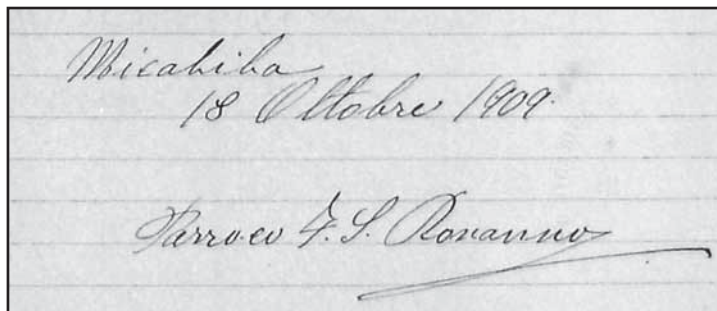 Micabiba
18 Ottobre 1909.
Parroco F. S. Romanno